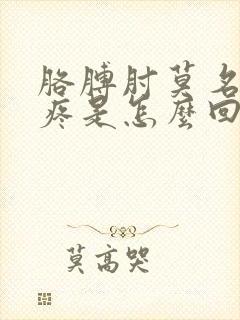 胳膊肘莫名
疼是怎麼回
莫高哭